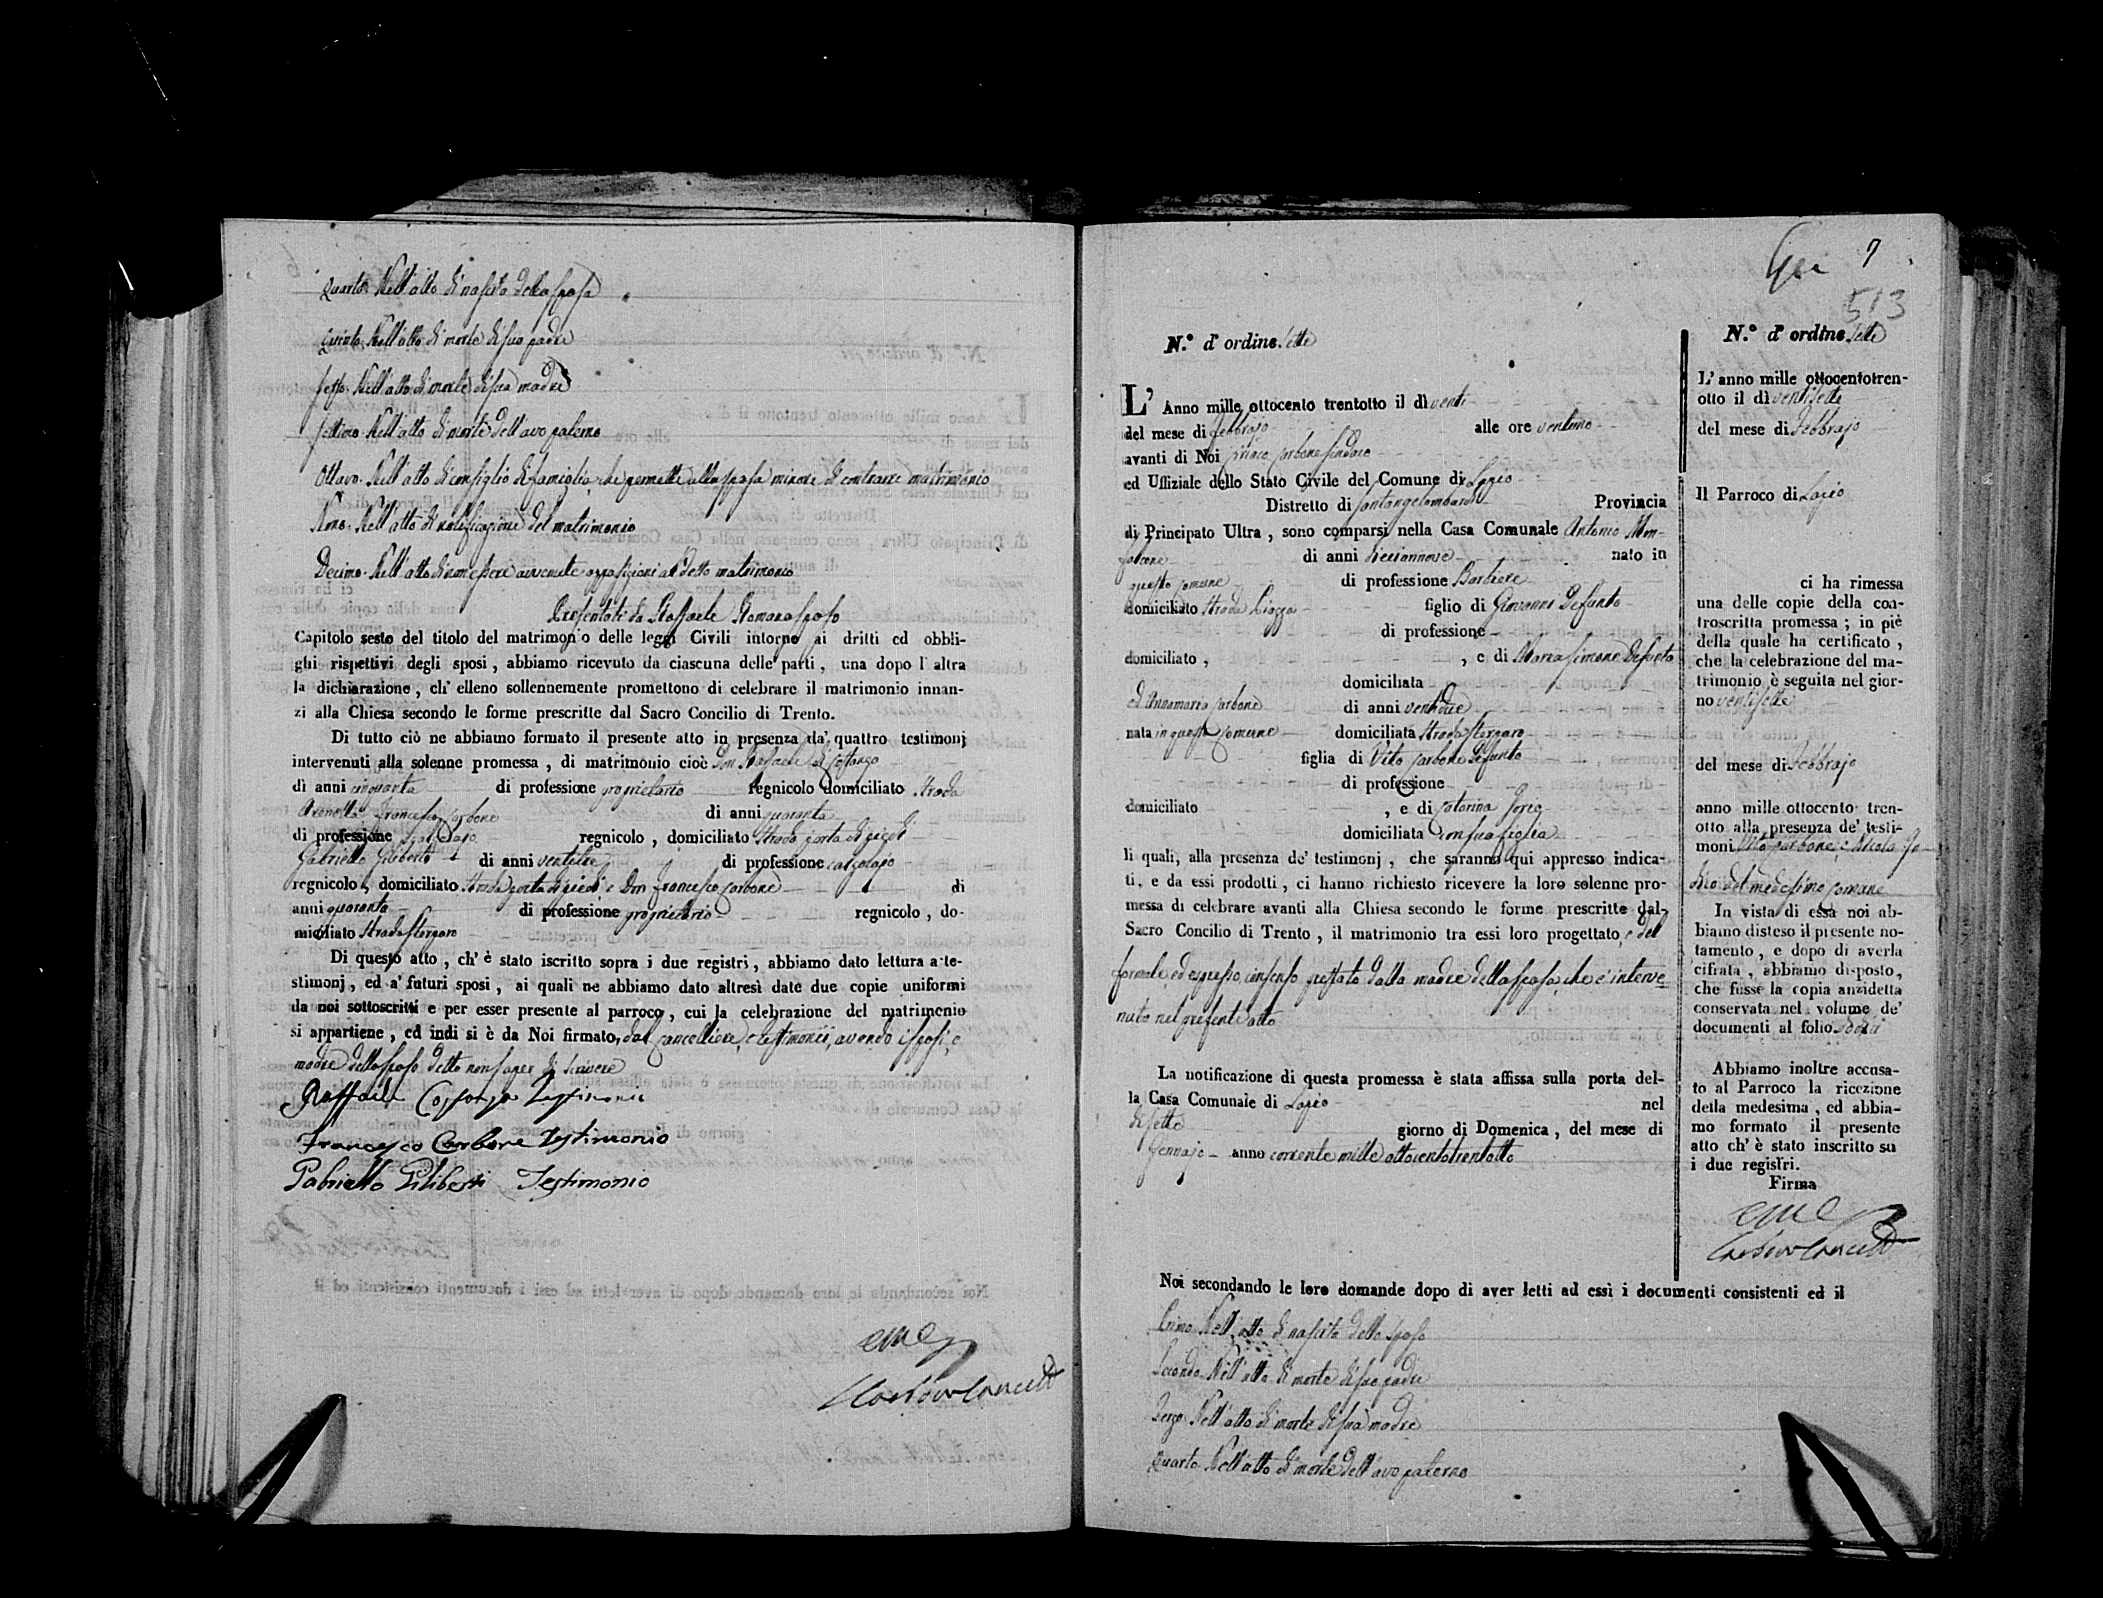 Quarto. Nell'atto di nascita della sposa
Quinto Nell'atto di morte di suo padre
Sesto. Nell'atto di morte di sua madre
Settimo. Nell'atto di morte dell'avo paterno
Ottavo. Nell'atto di consiglio di famiglia, che permette alla sposa minore di contrarre matrimonio
Nono. Nell'atto di notificazione del matrimonio
Decimo. Nell'atto di non essere avvenute opposizioni al detto matrimonio
Presentati da Raffaele Romano sposo
Capitolo sesto del titolo del matrimonio delle leggi Civili intorno ai dritti ed obbli-
ghi rispettivi degli sposi , abbiamo ricevuto da ciascuna delle parti , una dopo l'altra
la dichiarazione , ch' elleno sollennemente promettono di celebrare il matrimonio innan-
zi alla Chiesa secondo le forme prescritte dal Sacro Concilio di Trento.
Di tutto ciò ne abbiamo formato il presente atto in presenza da' quattro testimonj
intervenuti alla solenne promessa , di matrimonio cioè Don Raffaele
di anni cinquanta di professione proprietario regnicolo domiciliato Strada
Francesco Carbone di anni quaranta
di professione regnicolo , domiciliato Strada porta di piedi
Gabriello Giliberto di anni ventitre di professione calzolajo
regnicolo , domiciliato Strada porta di piedi e Don Francesco Carbone di
anni quaranta di professione proprietario regnicolo , do-
miciliato Strada
Di questo atto , ch' è stato iscritto sopra i due registri , abbiamo dato lettura a' te-
stimonj , ed a' futuri sposi , ai quali ne abbiamo dato altresì date due copie uniformi
da noi sottoscritti e per esser presente al parroco , cui la celebrazione del matrimonio
si appartiene , ed indi si è da Noi firmato, dal Cancelliere, e testimonii, avendo i sposi, e
madre dello sposo detto non saper di scrivere
Raffaele Testimonio
Francesco Carbone Testimonio
Gabriello Giliberti Testimonio
7
513
N.° d' ordine sette
L' Anno mille ottocento trentotto il dì venti
del mese di Febbrajo alle ore ventuno
avanti di Noi Carbone Sindaco
ed Uffiziale dello Stato Civile del Comune di Lapio
Distretto di Santangelombardi Provincia
di Principato Ultra , sono comparsi nella Casa Comunale Antonio
di anni diecinnove nato in
questo Comune di professione Barbiere
domiciliato Strada Piazza figlio di Giovanni Defunto
di professione
domiciliato , , e di Maria Simone Defunta
domiciliata
ed Annamaria Carbone di anni ventidue
nata in questo Comune domiciliata Strada
figlia di Vito Carbone Defunto
di professione
domiciliato , e di Catarina
domiciliata con sua figlia
li quali, alla presenza de' testimonj , che saranno qui appresso indica-
ti , e da essi prodotti , ci hanno richiesto ricevere la loro solenne pro-
messa di celebrare avanti alla Chiesa secondo le forme prescritte dal
Sacro Concilio di Trento , il matrimonio tra essi loro progettato, e del
formale, ed espresso consenso prestato dalla madre della sposa, che è interve-
nuto nel presente atto
La notificazione di questa promessa è stata affissa sulla porta del-
la Casa Comunale di Lapio nel
di sette giorno di Domenica , del mese di
Gennajo anno corrente mille ottocentotrentotto
N.° d' ordine sette
L' anno mille ottocentotren-
otto il dì ventisette
del mese di Febbrajo
Il Parroco di Lapio
ci ha rimessa
una delle copie della con-
troscritta promessa ; in piè
della quale ha certificato ,
che la celebrazione del ma-
trimonio è seguita nel gior-
no ventisette
del mese di Febbrajo
anno mille ottocento tren-
otto alla presenza de' testi-
moni Vito Carbone, e Nicola
del medesimo Comune
In vista di essa noi ab-
biamo disteso il presente no-
tamento , e dopo di averla
cifrata , abbiamo disposto,
che fusse la copia anzidetta
conservata nel volume de'
documenti al folio
Abbiamo inoltre accusa-
to al Parroco la ricezione
della medesima , ed abbia-
mo formato il presente
atto ch' è stato inscritto su
i due registri.
Firma
Noi secondando le loro domande dopo di aver letti ad essi i documenti consistenti ed il
Primo. Nell'atto di nascita dello sposo
Secondo. Nell'atto di morte di suo padre
Terzo. Nell'atto di morte di sua madre
Quarto. Nell'atto di morte dell'avo paterno